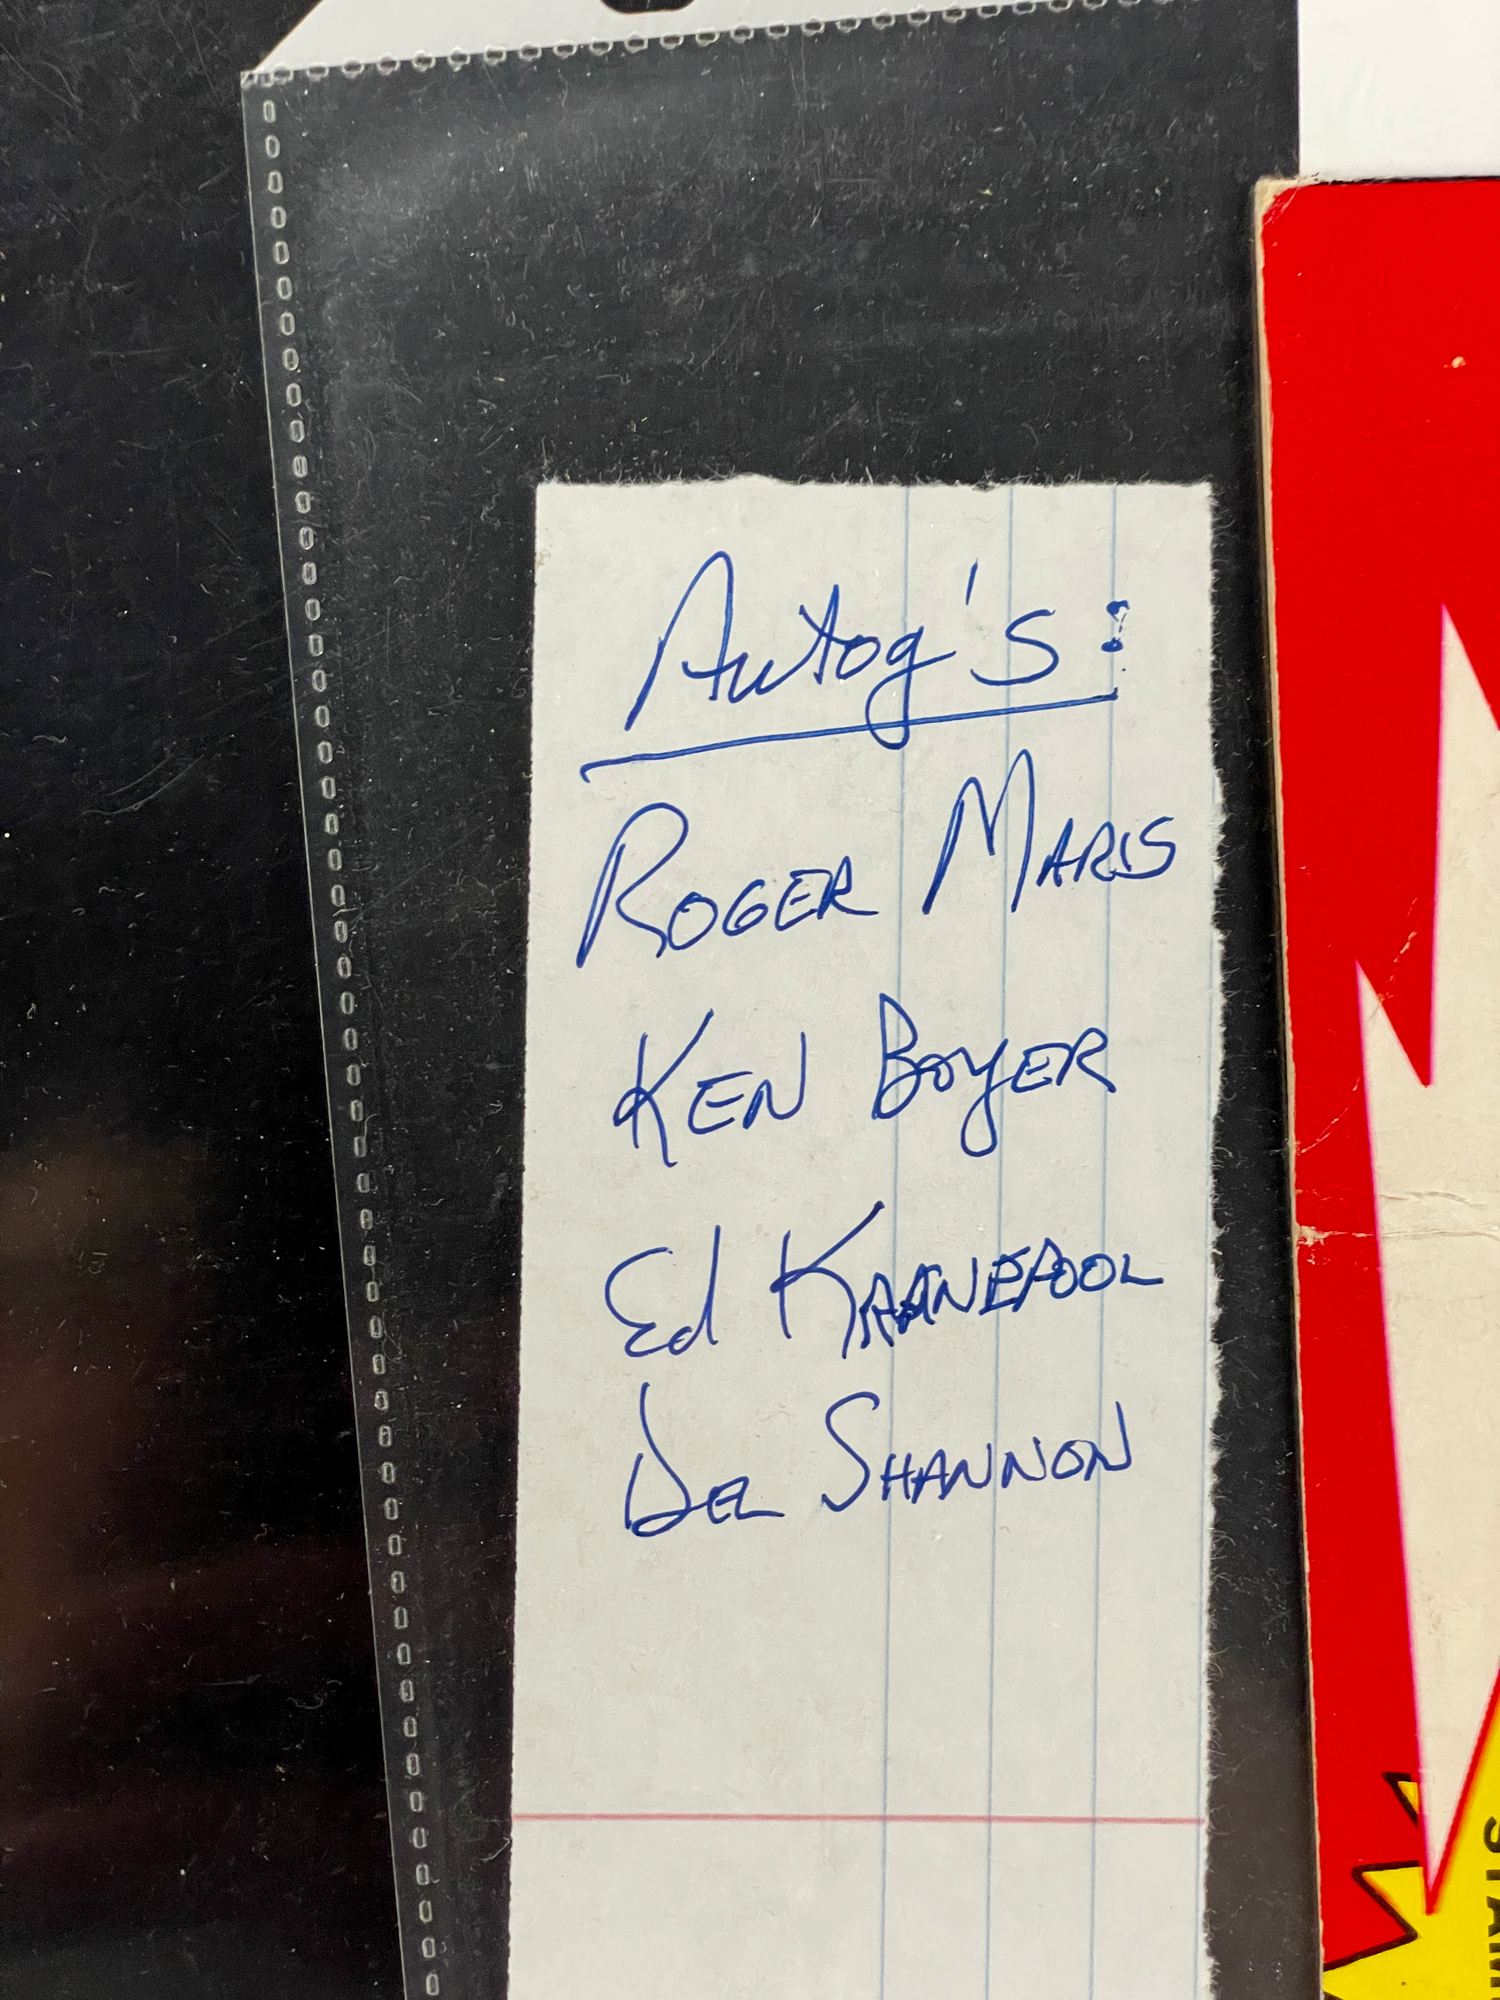 Autog's:
ROGER MARIS
KEN BOYER
Ed KRANEPOOL
DEL SHANNON
STAM